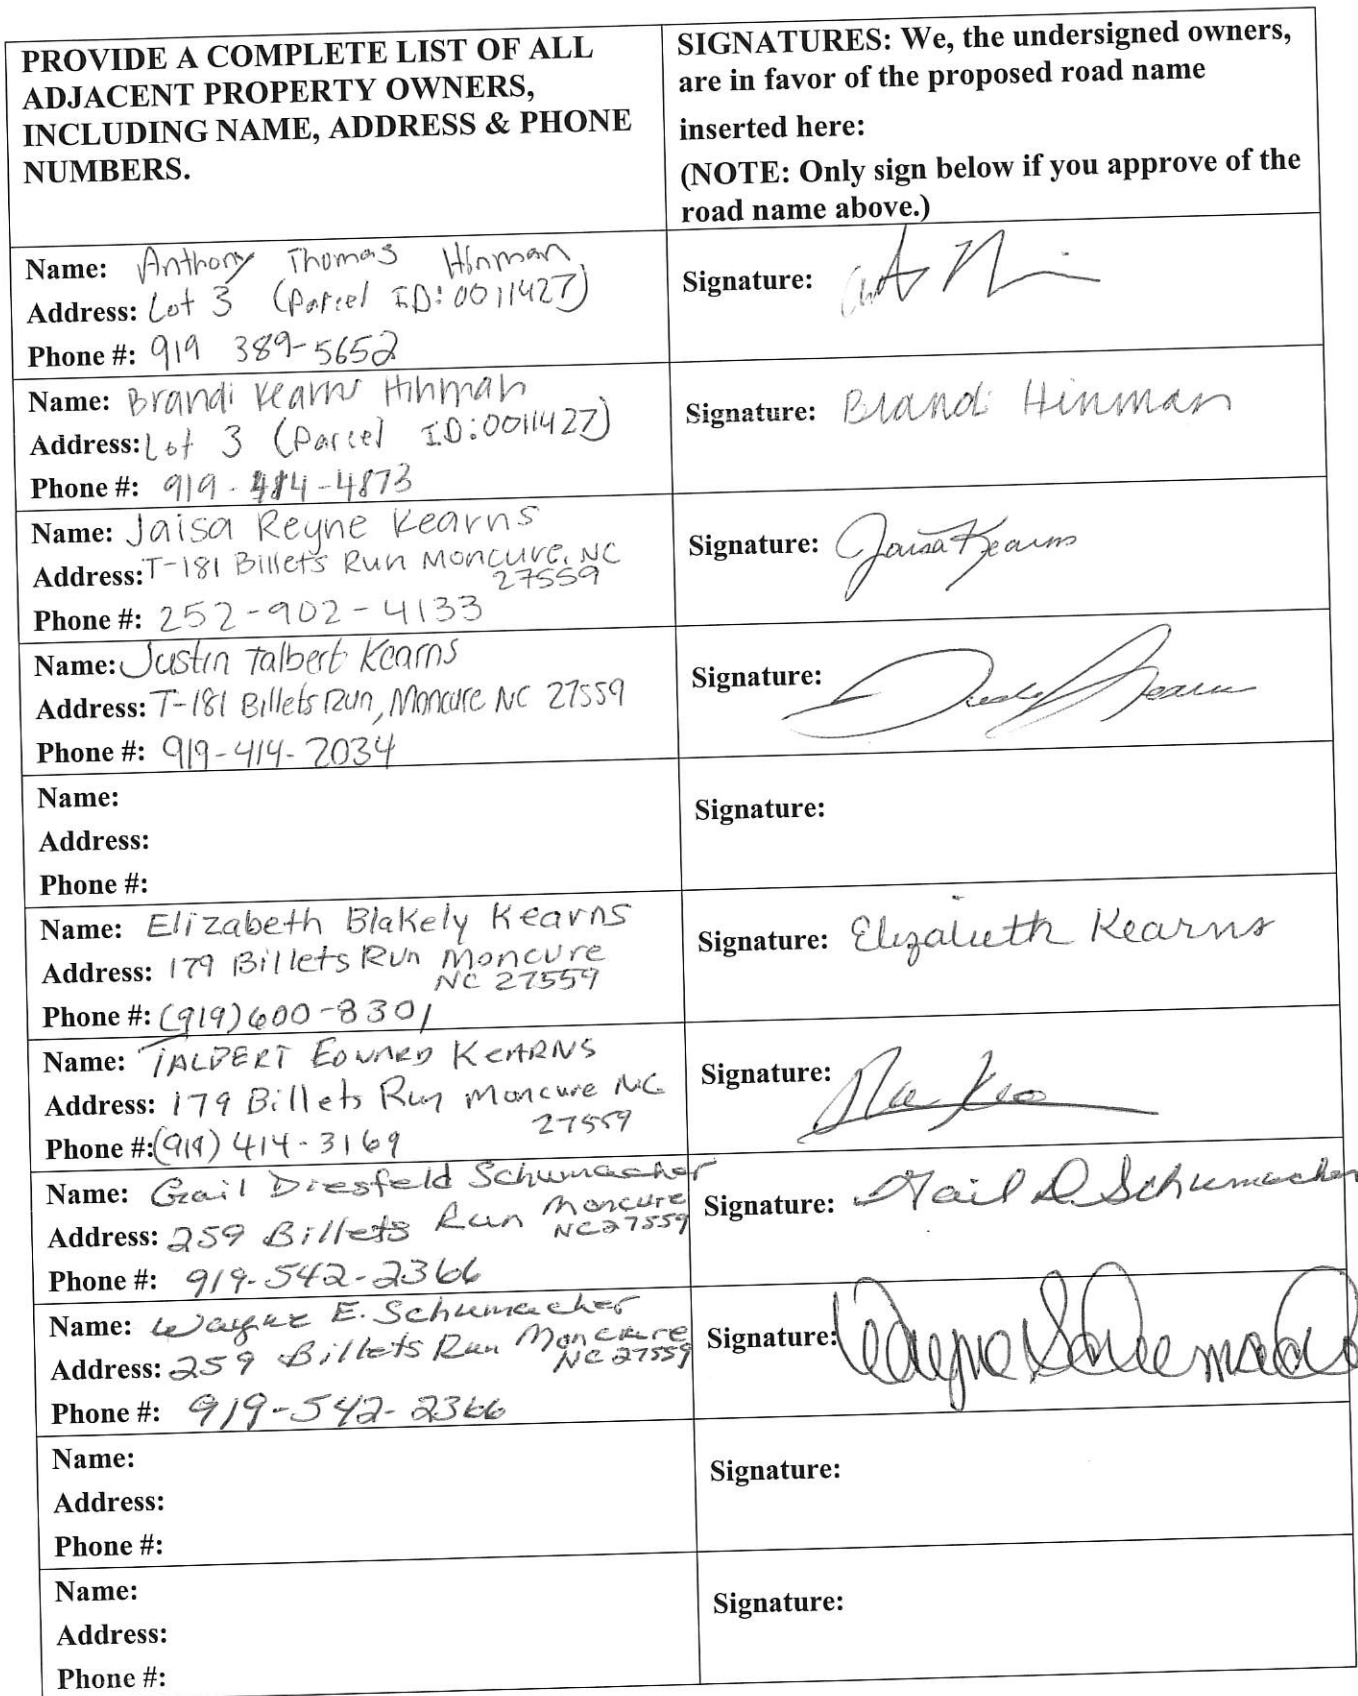 PROVIDE A COMPLETE LIST OF ALL
ADJACENT PROPERTY OWNERS,
INCLUDING NAME, ADDRESS & PHONE
NUMBERS.
SIGNATURES: We, the undersigned owners,
are in favor of the proposed road name
inserted here:
(NOTE: Only sign below if you approve of the
road name above.)
Name: Anthony Thomas Hinman
Address: Lot 3 (Parcel ID: 0011427)
Phone #: 919 389-5652
Signature:
Name: Brandi Kearns Hinman
Address: Lot 3 (Parcel ID: 0011427)
Phone #: 919-414-4873
Signature: Brandi Hinman
Name: Jaisa Reyne Kearns
Address: T-181 Billets Run Moncure, NC
27559
Phone #: 252-902-4133
Signature: Jaisa Kearns
Name: Justin Talbert Kearns
Address: T-181 Billets Run, Moncure NC 27559
Phone #: 919-414-2034
Signature: Kearns
Name:
Address:
Phone #:
Signature:
Name: Elizabeth Blakely Kearns
Address: 179 Billets Run Moncure
NC 27559
Phone #: (919) 600-8301
Signature: Elizabeth Kearns
Name: TALBERT EDWARD KEARNS
Address: 179 Billets Run Moncure NC
27559
Phone #: (919) 414-3169
Signature:
Name: Gail Diesfeld Schumacher
Address: 259 Billets Run Moncure
NC 27559
Phone #: 919-542-2366
Signature: Gail D Schumacher
Name: Wayne E. Schumacher
Address: 259 Billets Run Moncure
NC 27559
Phone #: 919-542-2366
Signature: Wayne Schumacher
Name:
Address:
Phone #:
Signature:
Name:
Address:
Phone #:
Signature: